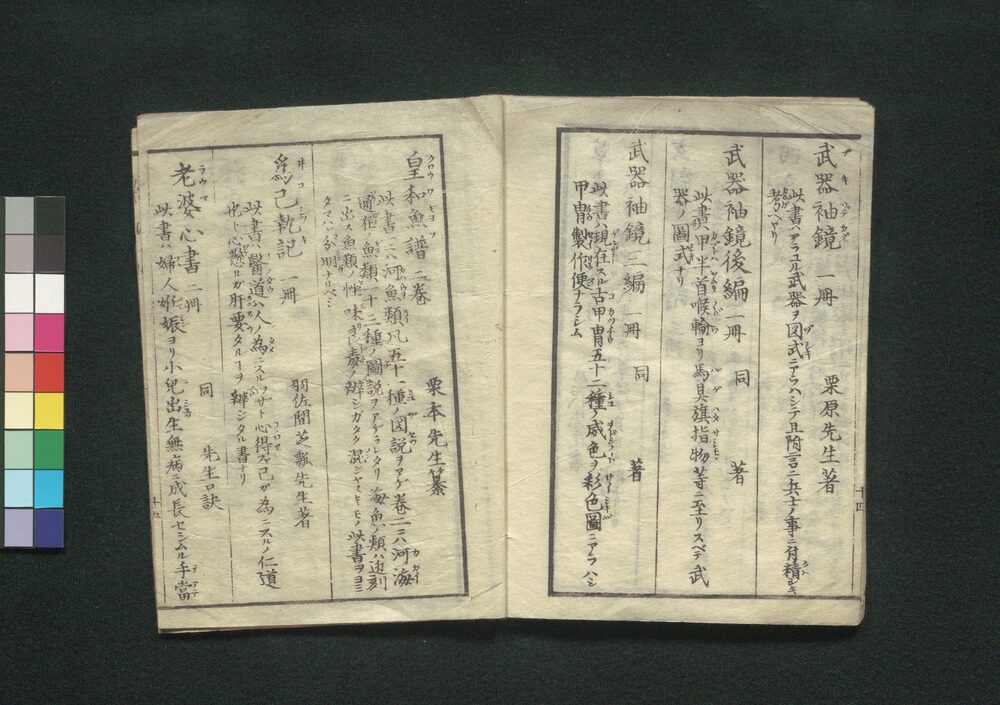 武器袖鏡 一冊 栗原先生著
此書ハアラユル武器ヲ図式ニアラハシテ且附言ニ兵士ノ事ニ付精シキ
考ヘアリ
武器袖鏡後編 一冊 同 著
此書ハ甲半首喉輪ヨリ馬具旗指物等ニ至リスベテ武
器ノ圖式ナリ
武器袖鏡三編 一冊 同 著
此書ハ現在スル古甲冑五十二種ノ威色ヲ彩色圖ニアラハシ
甲冑製作便ナラシム
十四
皇和魚譜 二巻 栗本先生纂
此書一ハ河魚類凡五十一種ノ図説ヲアゲ巻二ニハ河海
通在ノ魚類一十三種ノ圖説ヲアゲラレタリ海魚ノ類ハ近刻
ニ出ス魚類ノ性味 毒 辨ジガタク混ジヤスキモノ此書ヲヨミ
タマハヾ分明ナルベシ
為己執記 一冊 羽佐間芝瓢先生著
此書ハ醫道ハ人ノ為ニスルワザト心得ズ己ガ為ニスルノ仁道
也ト心 ルガ肝要タルコヲ辨ジタル書ナリ
老婆心書 二冊 同 先生口訣
此書ハ婦人妊娠ヨリ小兒出生無病ニ成長セシムル手當